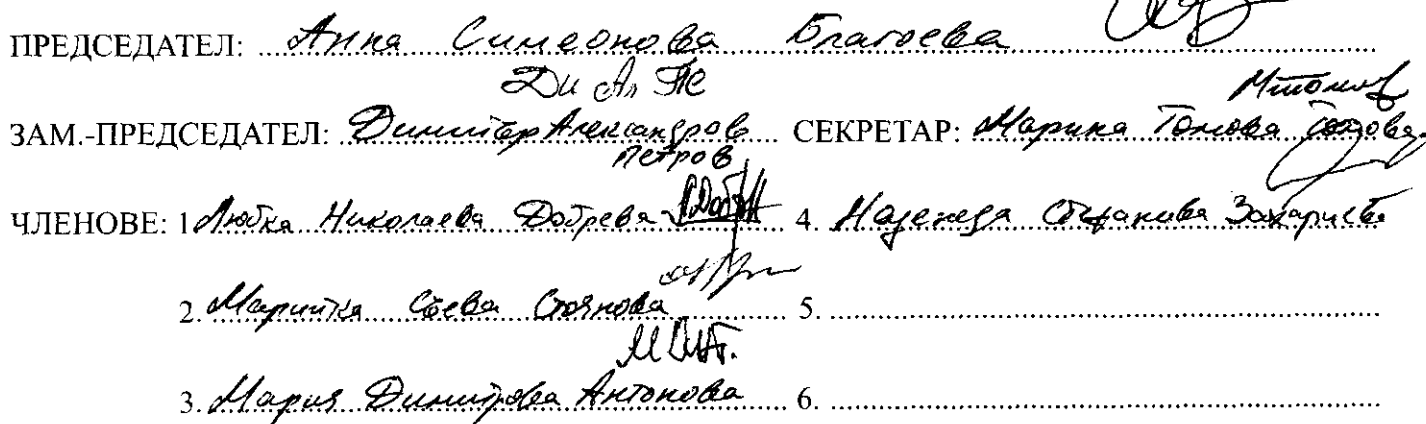 ПРЕДСЕДАТЕЛ: Анна Симеонова Благоева
Ди Ал Пе
ЗАМ.-ПРЕДСЕДАТЕЛ: Димитър Александров Петров СЕКРЕТАР: Марина Томова
ЧЛЕНОВЕ: 1 Любка Николаева Добрева 4. Надежда Стефанова Захариева
2. Марийка Стоянова 5.
3. Мария Димитрова Антонова 6.